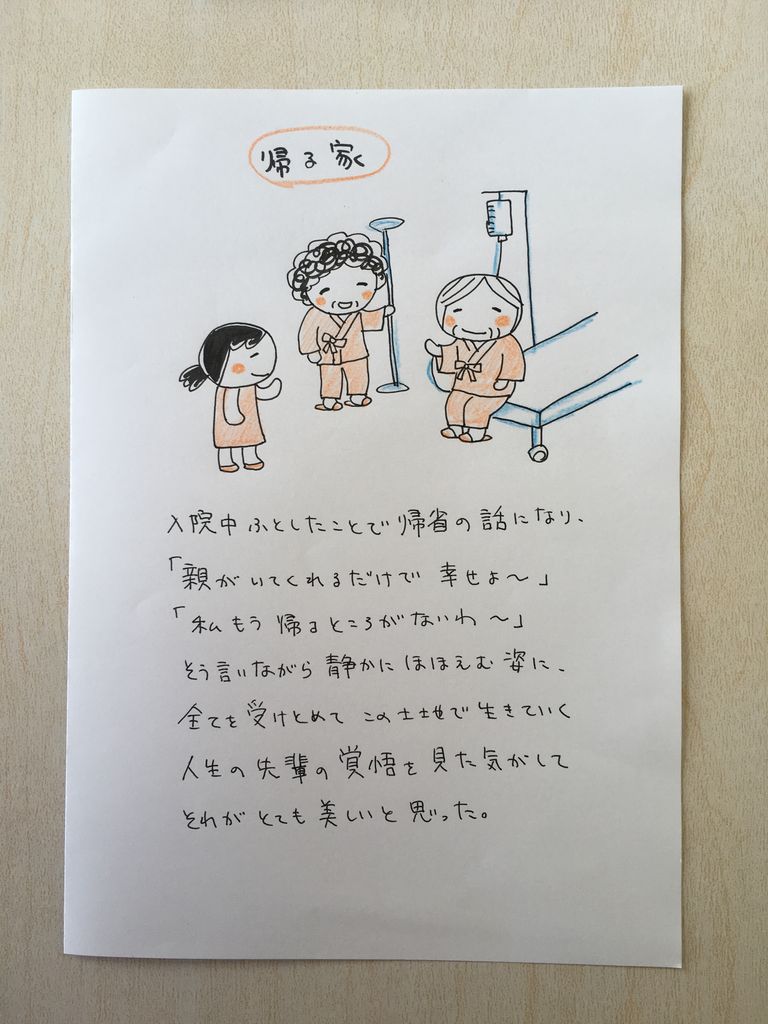 帰る家
入院中ふとしたことで帰省の話になり、
「親がいてくれるだけで幸せよ〜」
「私もう帰るところがないわ〜」
そう言いながら静かにほほえむ姿に、
全てを受けとめてこの土地で生きていく
人生の先輩の覚悟を見た気がして
それがとても美しいと思った。